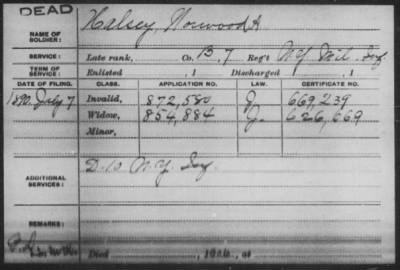 DEAD
NAME OF SOLDIER: Halsey, Norwood A
SERVICE: Late rank, Co. B, 7 Reg't N.Y. Mil. Inf
TERM OF SERVICE: Enlisted , 1 Discharged , 1
DATE OF FILING. CLASS. APPLICATION NO. LAW. CERTIFICATE NO.
1890, July 7 Invalid, 872,580 J 669,239
Widow, 854,884 J. 626,669
Minor,
ADDITIONAL SERVICES: N.Y. Inf.
REMARKS:
Died , 190 , at